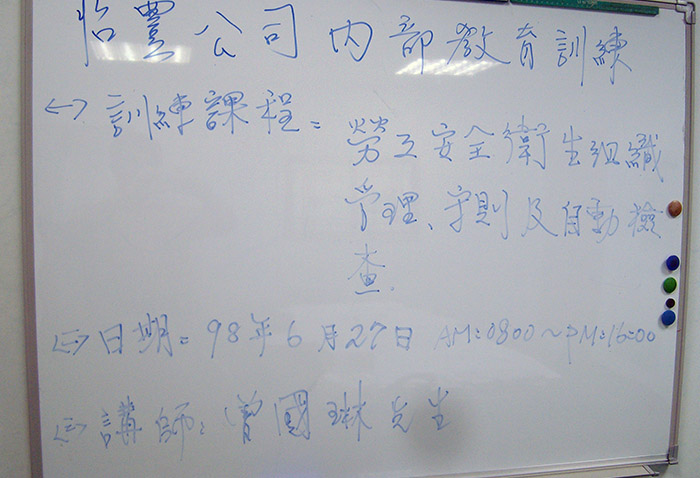 怡豐公司內部教育訓練
<一>訓練課程：勞工安全衛生組織
管理、守則及自動檢
查.
<二>日期：98年6月27日 AM:0800～PM:16:00
<三>講師：曾國琳先生